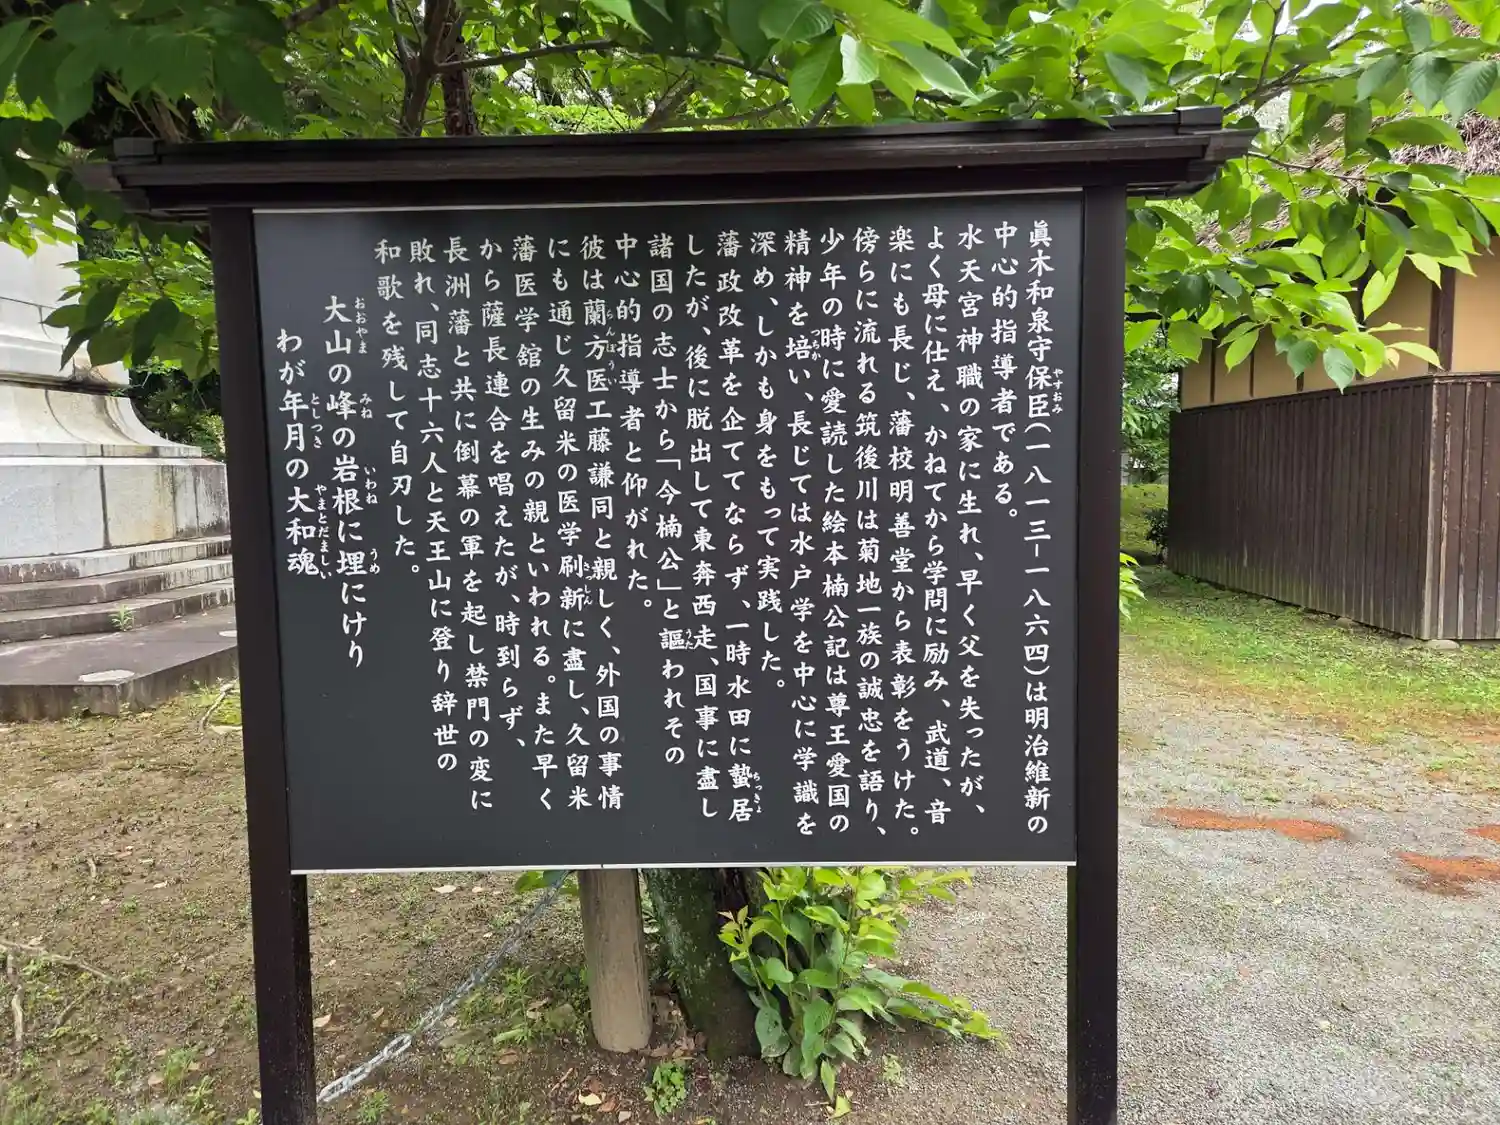 眞木和泉守保臣(一八一三ー一八六四)は明治維新の
中心的指導者である。
水天宮神職の家に生れ、早く父を失ったが、
よく母に仕え、かねてから学問に励み、武道、音
楽にも長じ、藩校明善堂から表彰をうけた。
傍らに流れる筑後川は菊地一族の誠忠を語り、
少年の時に愛読した絵本楠公記は尊王愛国の
精神を培い、長じては水戸学を中心に学識を
深め、しかも身をもって実践した。
藩政改革を企ててならず、一時水田に蟄居
したが、後に脱出して東奔西走、国事に盡し
諸国の志士から「今楠公」と謳われその
中心的指導者と仰がれた。
彼は蘭方医工藤謙同と親しく、外国の事情
にも通じ久留米の医学刷新に盡し、久留米
藩医学舘の生みの親といわれる。また早く
から薩長連合を唱えたが、時到らず、
長洲藩と共に倒幕の軍を起し禁門の変に
敗れ、同志十六人と天王山に登り辞世の
和歌を残して自刃した。
大山の峰の岩根に埋にけり
わが年月の大和魂